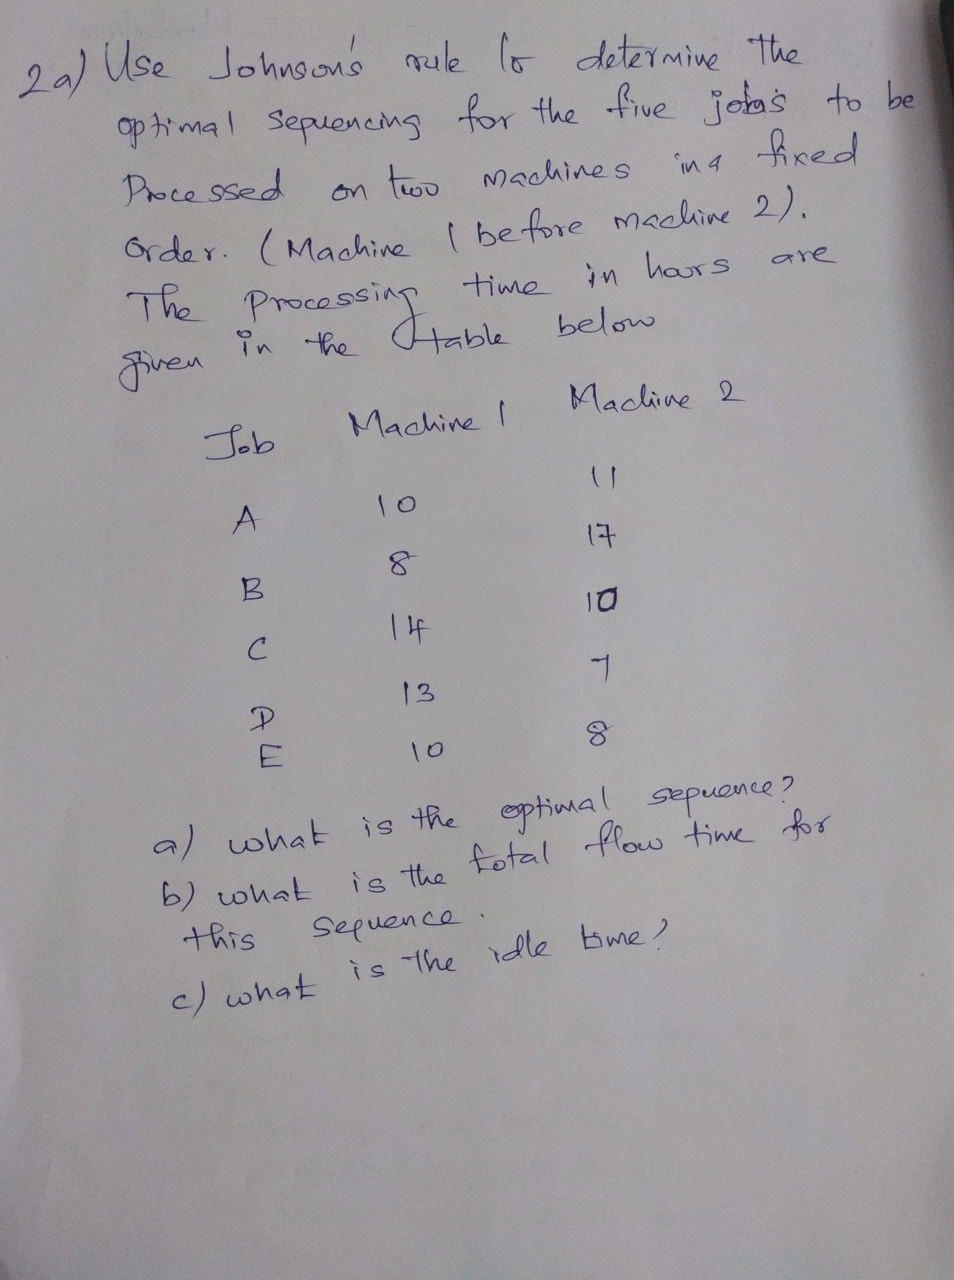 2a) Use Johnson's rule to determine the
optimal sequencing for the five jobs to be
Processed on two Machines in a fixed
Order. (Machine 1 before machine 2).
The processing time in hours are
given in the table below
Job Machine 1 Machine 2
A 10 11
B 8 17
C 14 10
D 13 7
E 10 8
a) what is the optimal sequence?
b) what is the total flow time for
this sequence.
c) what is the idle time?